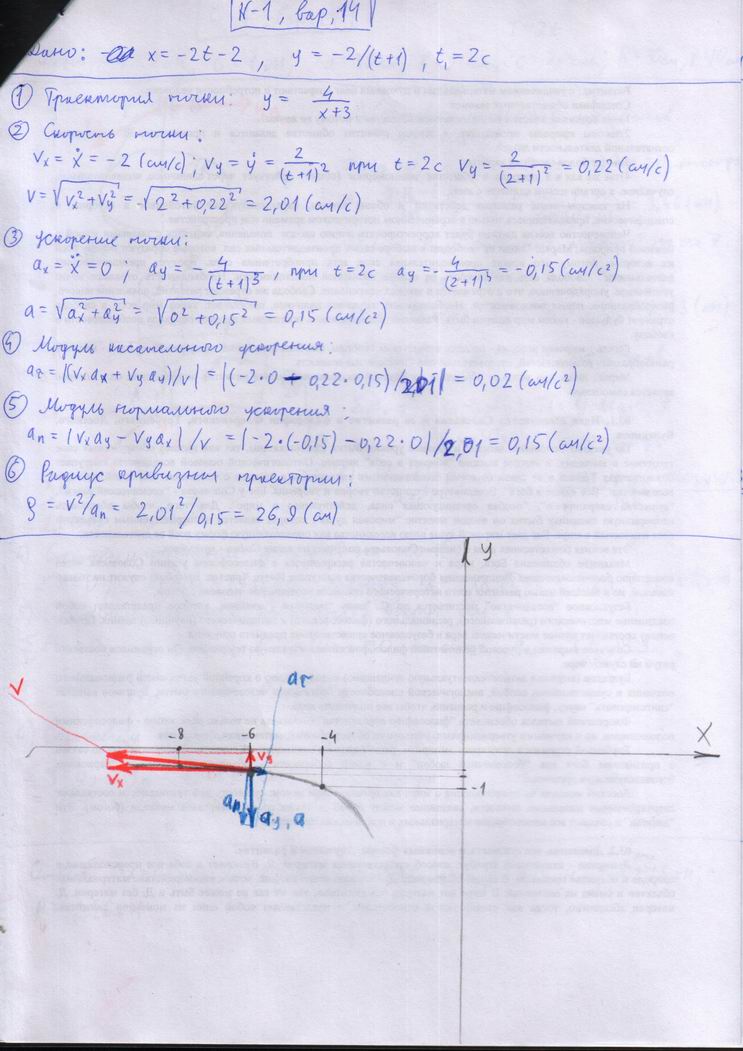 К-1, вар, 14
Дано: x = -2t - 2, y = -2/(t+1), t₁ = 2c
① Траектория точки: y = 4/(x+3)
② Скорость точки:
Vx = ẋ = -2 (см/с); Vy = ẏ = 2/(t+1)² при t = 2c Vy = 2/(2+1)² = 0,22 (см/с)
V = √(Vx² + Vy²) = √(2² + 0,22²) = 2,01 (см/с)
③ Ускорение точки:
ax = ẍ = 0; ay = -4/(t+1)³, при t = 2c ay = -4/(2+1)³ = -0,15 (см/с²)
a = √(ax² + ay²) = √(0² + 0,15²) = 0,15 (см/с²)
④ Модуль касательного ускорения:
aτ = |(Vx ax + Vy ay)/V| = |(-2·0 - 0,22·0,15)/2,01| = 0,02 (см/с²)
⑤ Модуль нормального ускорения:
an = |Vx ay - Vy ax|/V = |-2·(-0,15) - 0,22·0|/2,01 = 0,15 (см/с²)
⑥ Радиус кривизны траектории:
ρ = V²/an = 2,01²/0,15 = 26,9 (см)
y
aτ
V
-8 -6 -4
X
Vy
Vx
-1
an
ay, a